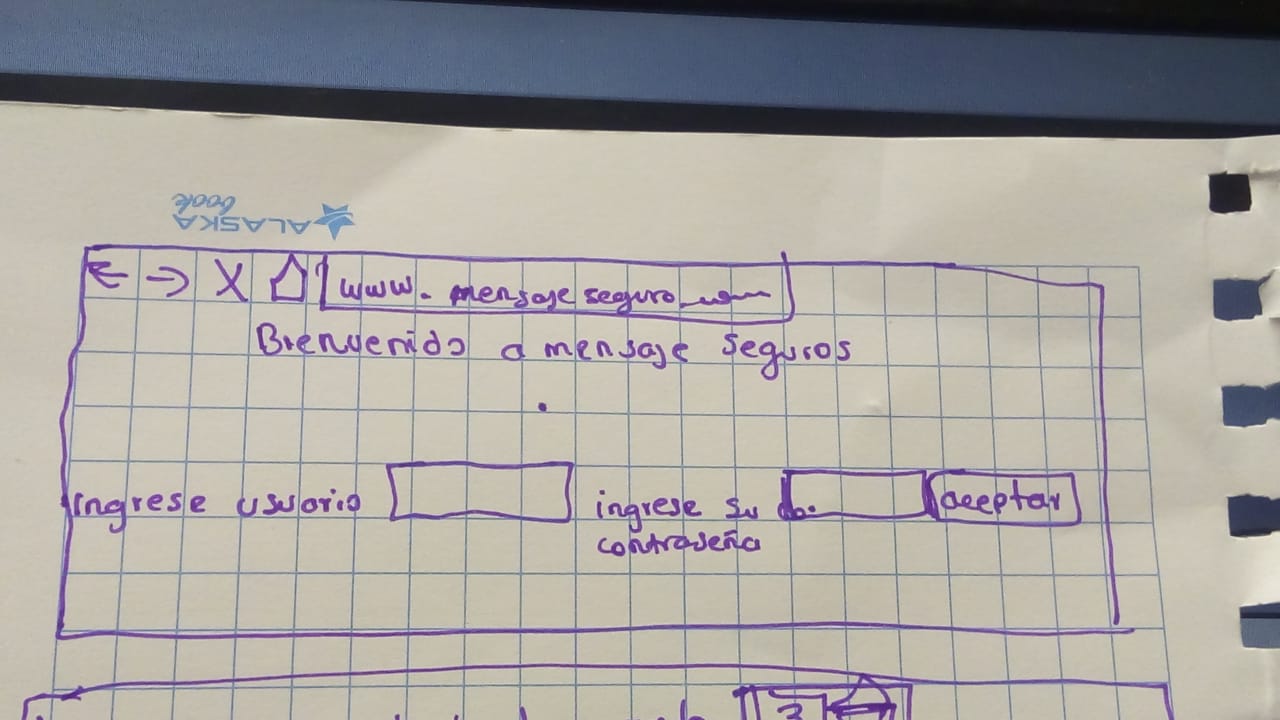 ALASKA
book
www. mensaje seguro
Bienvenido a mensaje seguros
ingrese usuario
ingrese su
contraseña
aceptar
3